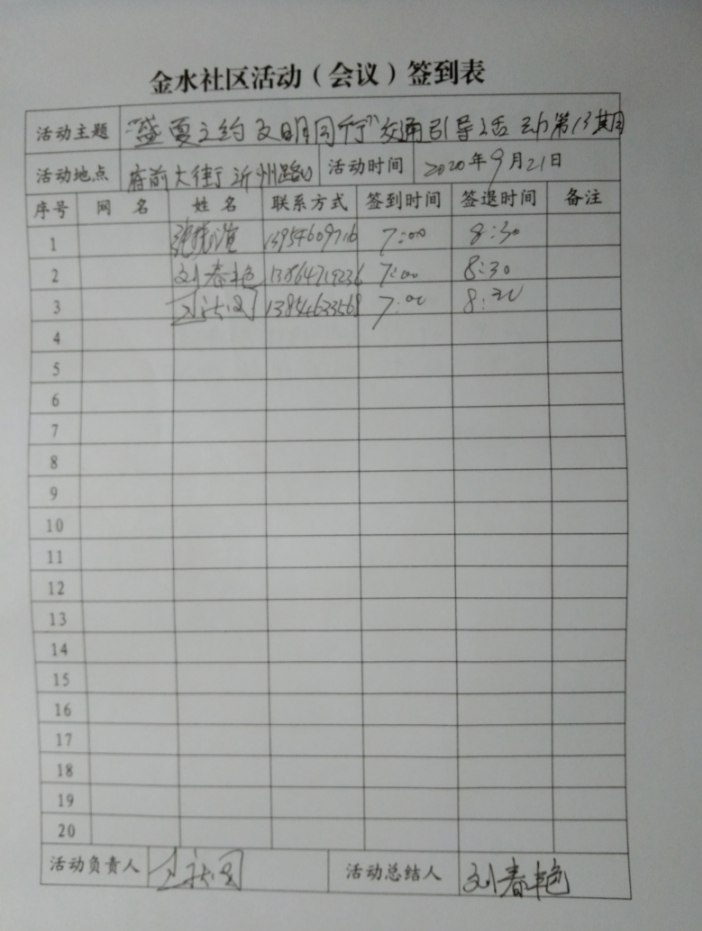 金水社区活动（会议）签到表
活动主题 “盛夏之约 文明同行”交通引导活动第13期
活动地点 府前大街沂州路口 活动时间 2020年9月21日
序号 网 名 姓 名 联系方式 签到时间 签退时间 备注
1 13954609716 7:00 8:30
2 刘春艳 13864719236 7:00 8:30
3 7:00 8:30
4
5
6
7
8
9
10
11
12
13
14
15
16
17
18
19
20
活动负责人 活动总结人 刘春艳